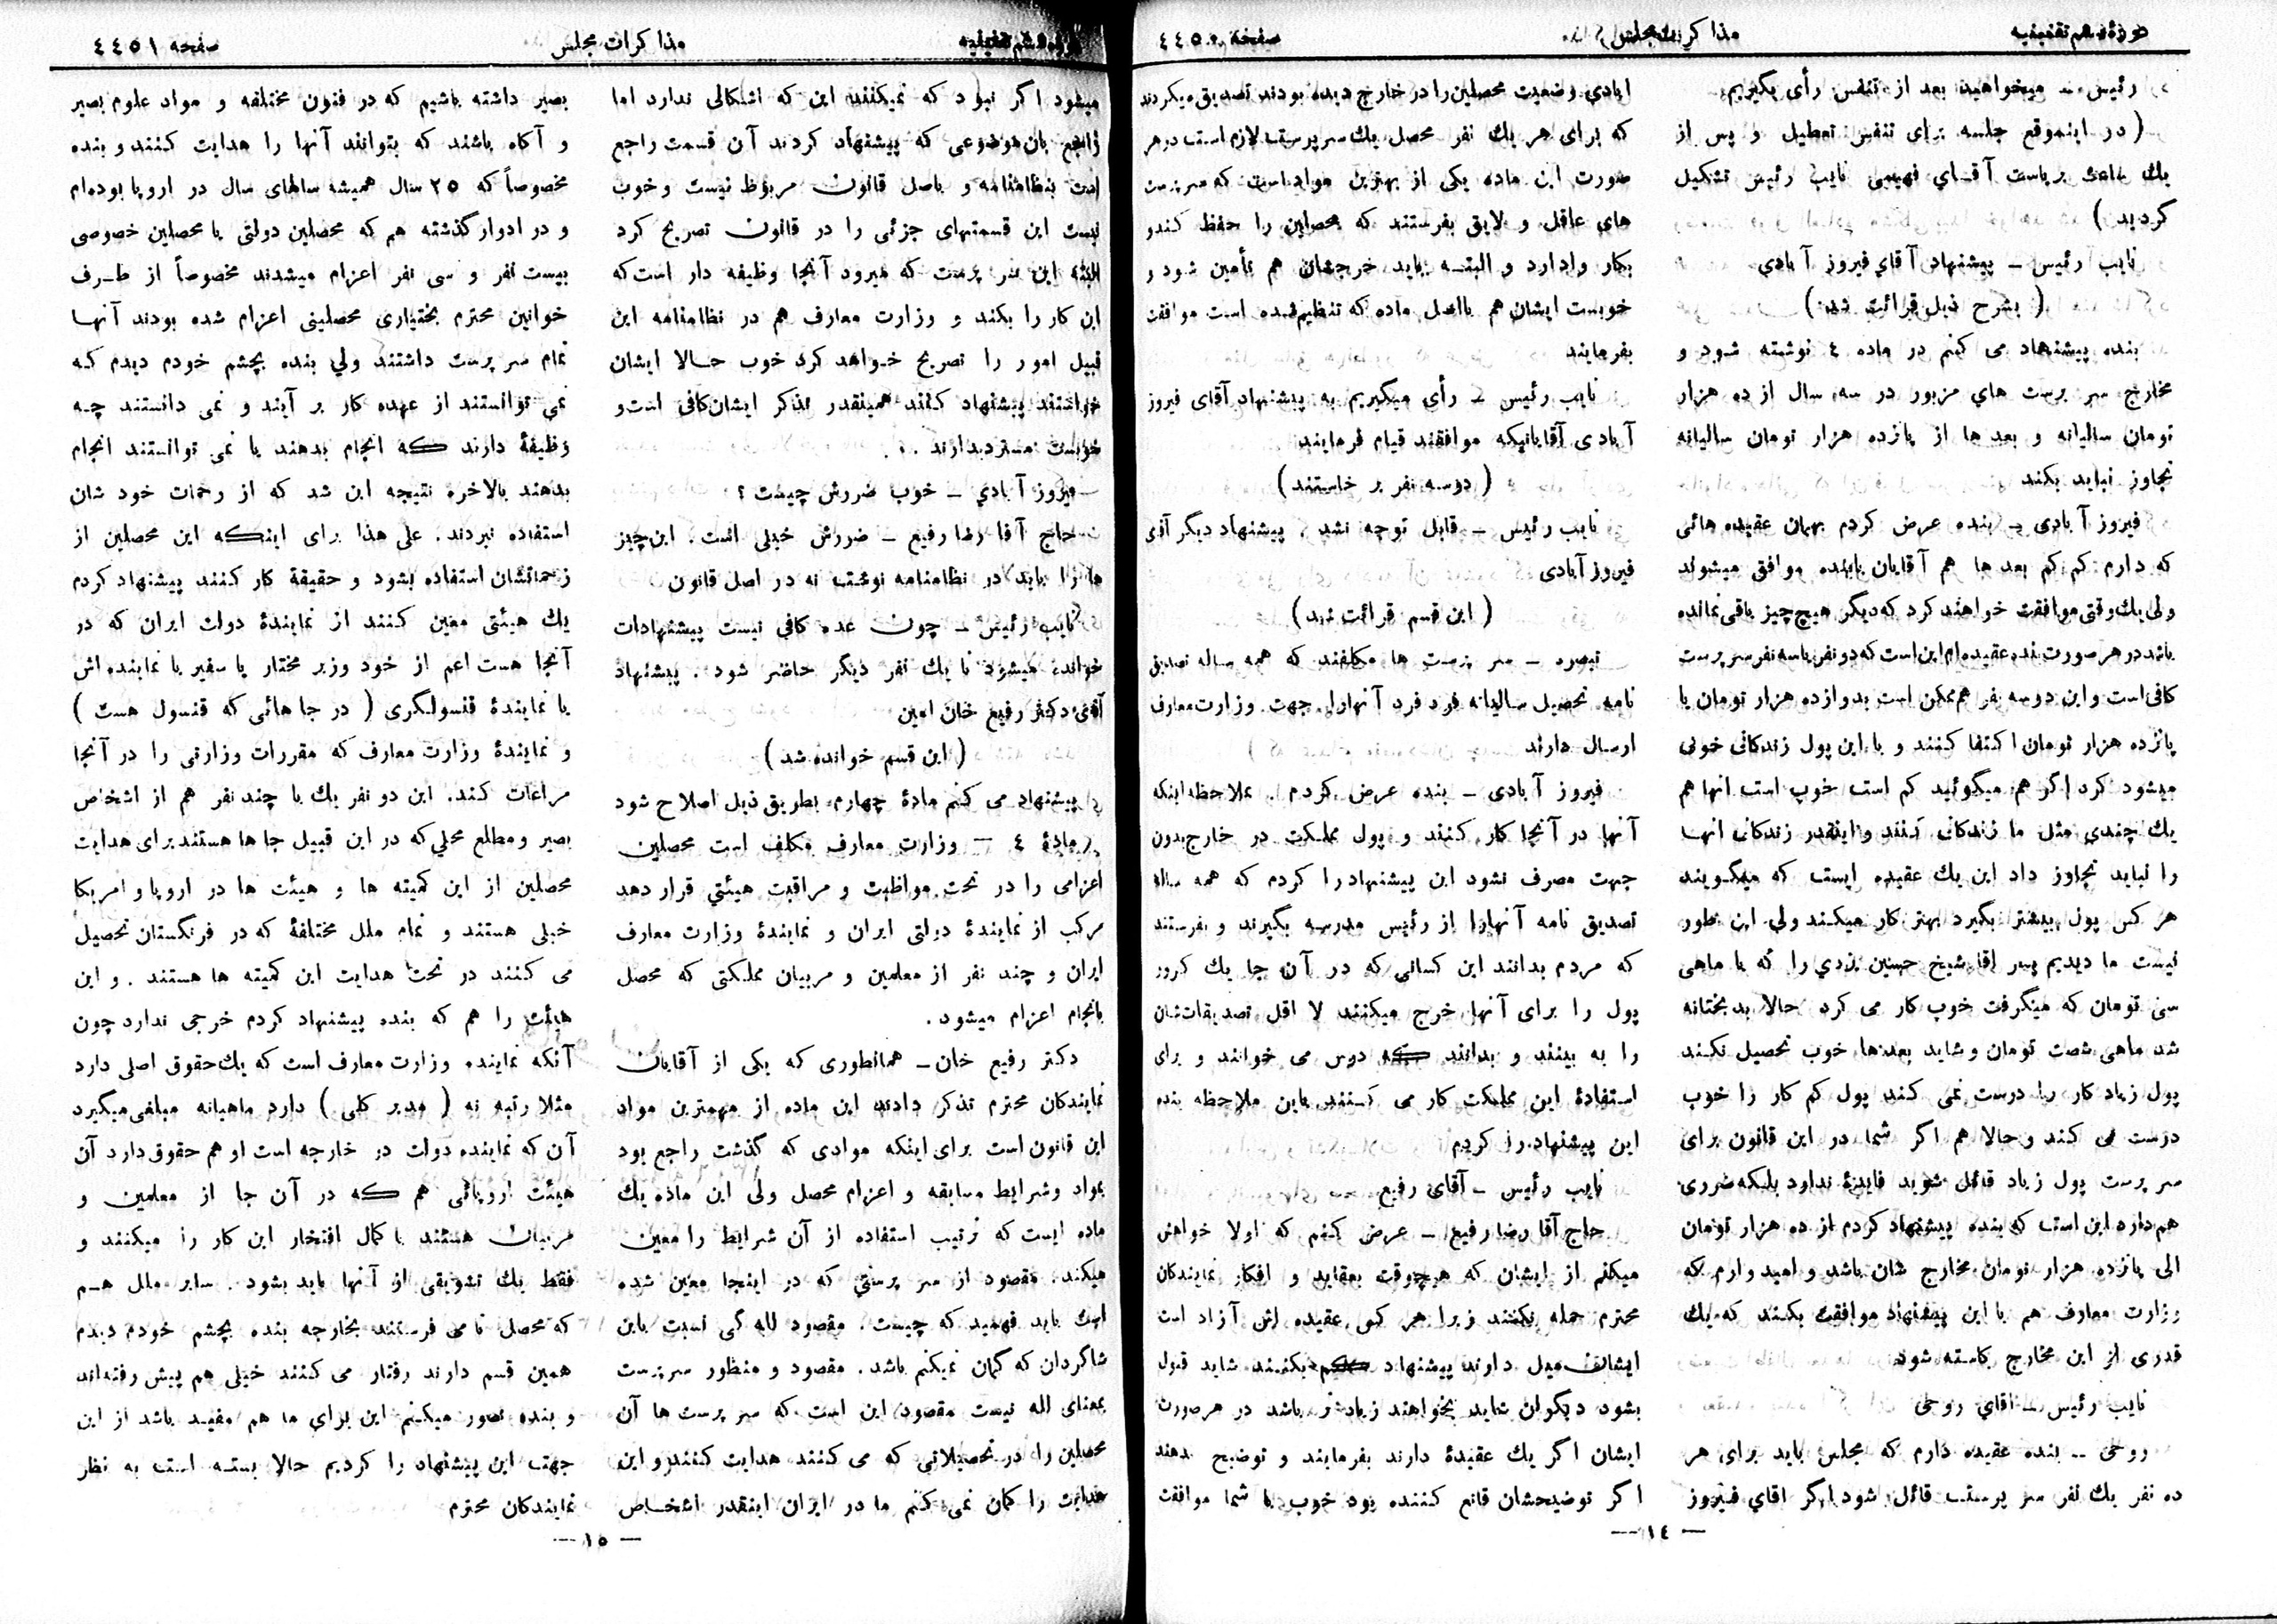 دورهٔ ششم تقنینیه
مذاکرات مجلس
صفحه ٤٤٥٠
رئیس ــ میخواهید بعد از تنفس رأی بگیریم.
( در اینموقع جلسه برای تنفس تعطیل و پس از
یك ساعت بریاست آقای فهیمی نایب رئیس تشکیل
گردید )
نایب رئیس ــ پیشنهاد آقای فیروز آبادی
( بشرح ذیل قرائت شد )
بنده پیشنهاد می کنم در ماده ٤ نوشته شود و
مخارج سر پرست های مزبور در سه سال از ده هزار
تومان سالیانه و بعد ها از پانزده هزار تومان سالیانه
تجاوز نباید بکند
فیروز آبادی ــ بنده عرض کردم بهمان عقیده هائی
که دارم کم کم بعد ها هم آقایان بابنده موافق میشوند
ولی یك وقتی موافقت خواهند کرد که دیگر هیچ چیز باقی نمانده
باشد در هر صورت بنده عقیده ام این است که دو نفر یا سه نفر سر پرست
کافی است و این دو سه نفر هم ممکن است بدوازده هزار تومان یا
پانزده هزار تومان اکتفا کنند و با این پول زندگانی خوبی
میشود کرد اگر هم میگوئید کم است خوب است انها هم
یك چندی مثل ما زندگانی کنند و اینقدر زندگانی انها
را نباید تجاوز داد این یك عقیده ایست که میگویند
هر کس پول بیشتر بگیرد بهتر کار میکند ولی این طور
نیست ما دیدیم پسر اقا شیخ حسین یزدی را که با ماهی
سی تومان که میگرفت خوب کار می کرد حالا بدبختانه
شد ماهی شصت تومان و شاید بعدها خوب تحصیل نکند
پول زیاد کار را درست نمی کند پول کم کار را خوب
درست می کند و حالا هم اگر شما در این قانون برای
سر پرست پول زیاد قائل شوید فایدهٔ ندارد بلکه ضرری
هم دارد این است که بنده پیشنهاد کردم از ده هزار تومان
الی پانزده هزار تومان مخارج شان باشد و امیدوارم که
وزارت معارف هم با این پیشنهاد موافقت بکند که یك
قدری از این مخارج کاسته شود
نایب رئیس ــ اقای روحی
روحی ــ بنده عقیده دارم که مجلس باید برای هر
ده نفر یك نفر سر پرست قائل شود اگر اقای فیروز
ابادی وضعیت محصلین را در خارج دیده بودند تصدیق میکردند
که برای هر یك نفر محصل یك سر پرست لازم است در هر
صورت این ماده یکی از بهترین مواد است که سرپرست
های عاقل و لایق بفرستند که محصلین را حفظ کند و
بکار وادارد و البته باید خرجشان هم تأمین شود و
خوبست ایشان هم بااصل ماده که تنظیم شده است موافقت
بفرمایند
نایب رئیس ــ رأی میگیریم به پیشنهاد آقای فیروز
آبادی آقایانیکه موافقند قیام فرمایند
( دو سه نفر بر خاستند )
نایب رئیس ــ قابل توجه نشد . پیشنهاد دیگر آقای
فیروز آبادی
( این قسم قرائت شد )
تبصره ــ سر پرست ها مکلفند که همه ساله تصدیق
نامه تحصیل سالیانه فرد فرد آنها را جهت وزارت معارف
ارسال دارند
فیروز آبادی ــ بنده عرض کردم . بملاحظه اینکه
آنها در آنجا کار کنند و پول مملکت در خارج بدون
جهت مصرف نشود این پیشنهاد را کردم که همه ساله
تصدیق نامه آنها را از رئیس مدرسه بگیرند و بفرستند
که مردم بدانند این کسانی که در آن جا یك کرور
پول را برای آنها خرج میکنند لا اقل تصدیقاتشان
را به بینند و بدانند که درس می خوانند و برای
استفادهٔ این مملکت کار می کنند باین ملاحظه بنده
این پیشنهاد را کردم
نایب رئیس ــ آقای رفیع
حاج آقا رضا رفیع ــ عرض کنم که اولا خواهش
میکنم از ایشان که هیچوقت بعقاید و افکار نمایندگان
محترم حمله نکنند زیرا هر کس عقیده اش آزاد است
ایشان میل دارند پیشنهاد بکنند شاید قبول
بشود دیگران شاید بخواهند زیادتر باشد در هر صورت
ایشان اگر یك عقیدهٔ دارند بفرمایند و توضیح بدهند
اگر توضیحشان قانع کننده بود خوب با شما موافقت
— ١٤ —
مذاکرات مجلس
صفحه ٤٤٥١
میشود اگر نبود که نمیکنند این که اشکالی ندارد اما
راجع بان موضوعی که پیشنهاد کردند آن قسمت راجع
است بنظامنامه و باصل قانون مربوط نیست و خوب
نیست این قسمتهای جزئی را در قانون تصریح کرد
البته این سر پرست که میرود آنجا وظیفه دار است که
این کار را بکند و وزارت معارف هم در نظامنامه این
قبیل امور را تصریح خواهد کرد خوب حالا ایشان
خواستند پیشنهاد کنند همینقدر تذکر ایشان کافی است و
خوبست مسترد بدارند .
فیروز آبادی ــ خوب ضررش چیست ؟
حاج آقا رضا رفیع ــ ضررش خیلی است . این چیز
ها را باید در نظامنامه نوشت نه در اصل قانون
نایب رئیس ــ چون عده کافی نیست پیشنهادات
خوانده میشود تا یك نفر دیگر حاضر شود . پیشنهاد
آقای دکتر رفیع خان امین
( این قسم خوانده شد )
پیشنهاد می کنم مادهٔ چهارم بطریق ذیل اصلاح شود
مادهٔ ٤ — وزارت معارف مکلف است محصلین
اعزامی را در تحت مواظبت و مراقبت هیئتی قرار دهد
مرکب از نمایندهٔ دولتی ایران و نمایندهٔ وزارت معارف
ایران و چند نفر از معلمین و مربیان مملکتی که محصل
بانجا اعزام میشود .
دکتر رفیع خان ــ همانطوری که یکی از آقایان
نمایندگان محترم تذکر دادند این ماده از مهمترین مواد
این قانون است برای اینکه موادی که گذشت راجع بود
بمواد و شرایط مسابقه و اعزام محصل ولی این ماده یك
ماده ایست که ترتیب استفاده از آن شرایط را معین
میکند . مقصود از سر پرستی که در اینجا معین شده
است باید فهمید که چیست . مقصود للـه گی نسبت باین
شاگردان که گمان نمیکنم باشد . مقصود و منظور سرپرست
بمعنای الله نیست مقصود این است که سر پرست ها آن
محصلین را در تحصیلاتی که می کنند هدایت کنند و این
هدایت را گمان نمی کنم ما در ایران اینقدر اشخاص
بصیر داشته باشیم که در فنون مختلفه و مواد علوم بصیر
و آگاه باشند که بتوانند آنها را هدایت کنند و بنده
مخصوصاً که ٢٥ سال همیشه سالهای سال در اروپا بوده ام
و در ادوار گذشته هم که محصلین دولتی یا محصلین خصوصی
بیست نفر و سی نفر اعزام میشدند مخصوصاً از طرف
خوانین محترم بختیاری محصلینی اعزام شده بودند آنها
تمام سر پرست داشتند ولی بنده بچشم خودم دیدم که
نمی توانستند از عهده کار بر آیند و نمی دانستند چه
وظیفهٔ دارند که انجام بدهند یا نمی توانستند انجام
بدهند بالاخره نتیجه این شد که از زحمات خود شان
استفاده نبردند . علی هذا برای اینکه این محصلین از
زحماتشان استفاده بشود و حقیقة کار کنند پیشنهاد کردم
یك هیئتی معین کنند از نمایندهٔ دولت ایران که در
آنجا هست اعم از خود وزیر مختار یا سفیر یا نماینده اش
یا نمایندهٔ قنسولگری ( در جا هائی که قنسول هست )
و نمایندهٔ وزارت معارف که مقررات وزارتی را در آنجا
مراعات کند . این دو نفر یك یا چند نفر هم از اشخاص
بصیر و مطلع محلی که در این قبیل جا ها هستند برای هدایت
محصلین از این کمیته ها و هیئت ها در اروپا و امریکا
خیلی هستند و تمام ملل مختلفهٔ که در فرنگستان تحصیل
می کنند در تحت هدایت این کمیته ها هستند . و این
هیئت را هم که بنده پیشنهاد کردم خرجی ندارد چون
آنکه نماینده وزارت معارف است که یك حقوق اصلی دارد
مثلا رتبه نه ( مدیر کلی ) دارد ماهیانه مبلغی میگیرد
آن که نماینده دولت در خارجه است او هم حقوق دارد آن
هیئت اروپائی هم که در آن جا از معلمین و
مربیان هستند با کمال افتخار این کار را میکنند و
فقط یك تشویقی از آنها باید بشود . سایر ملل هم
که محصل می فرستند بخارجه بنده بچشم خودم دیدم
همین قسم دارند رفتار می کنند خیلی هم پیش رفته‌اند
و بنده تصور میکنم این برای ما هم مفید باشد از این
جهت این پیشنهاد را کردیم حالا بسته است به نظر
نمایندگان محترم
— ١٥ —